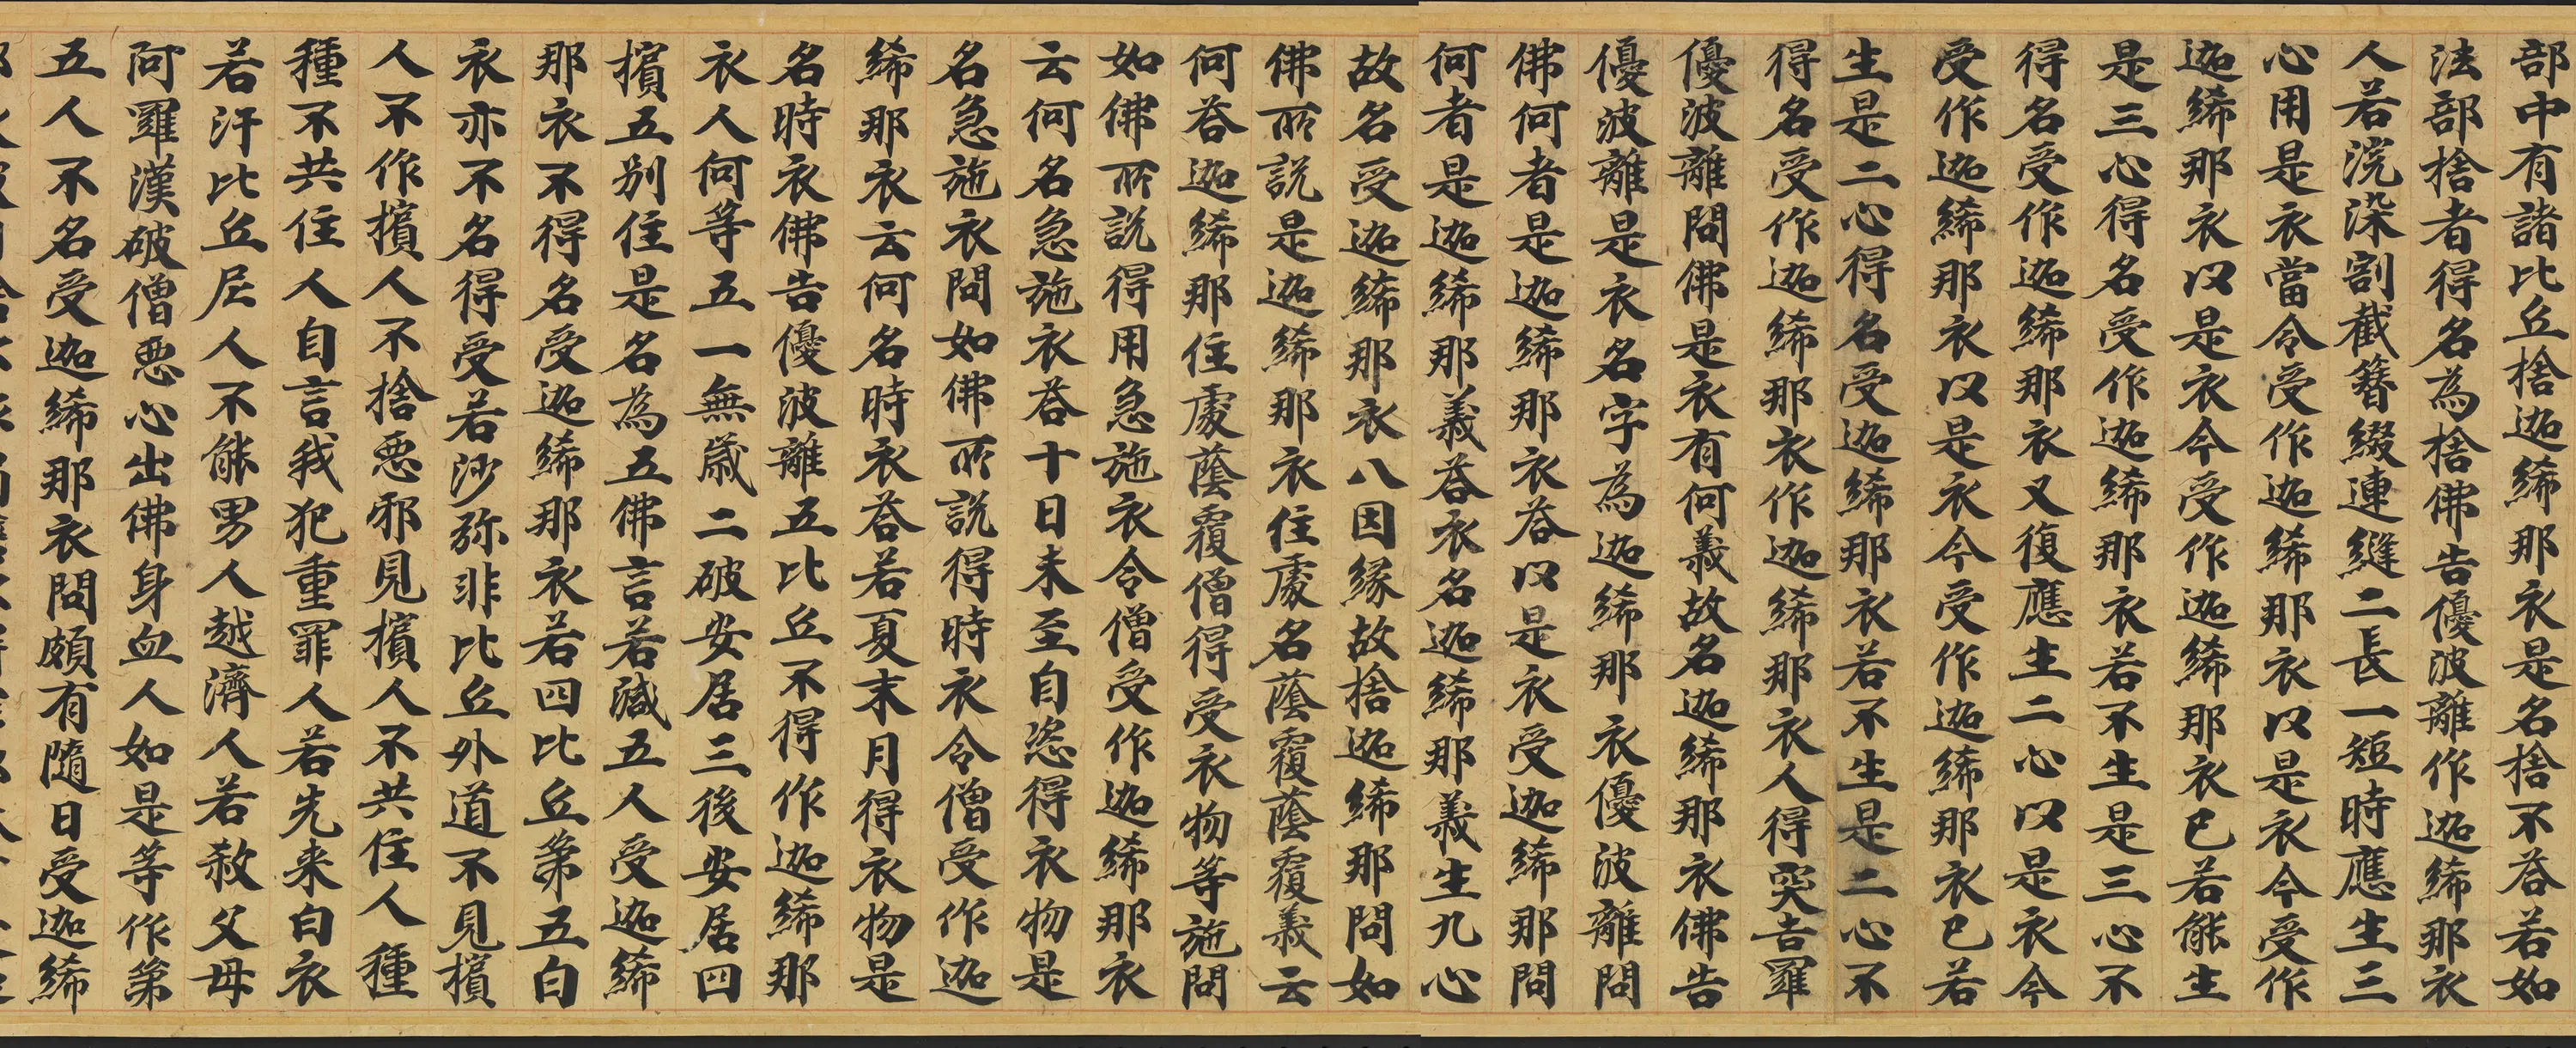 部中有諸比丘捨迦絺那衣是名捨不荅若如
法部捨者得名為捨佛告優波離作迦絺那衣
人若浣染割截簪綴連縫二長一短時應生三
心用是衣當令受作迦絺那衣以是衣今受作
迦絺那衣以是衣今受作迦絺那衣已若能生
是三心得名受作迦絺那衣若不生是三心不
得名受作迦絺那衣又復應生二心以是衣今
受作迦絺那衣以是衣今受作迦絺那衣已若
生是二心得名受迦絺那衣若不生是二心不
得名受作迦絺那衣作迦絺那衣人得突吉羅
優波離問佛是衣有何義故名迦絺那衣佛告
優波離是衣名字為迦絺那衣優波離問
佛何者是迦絺那衣荅以是衣受迦絺那問
何者是迦絺那義荅衣名迦絺那義生九心
故名受迦絺那衣八因緣故捨迦絺那問如
佛所說是迦絺那衣住處名蔭覆蔭覆義云
何荅迦絺那住處蔭覆僧得受衣物等施問
如佛所說得用急施衣令僧受作迦絺那衣
云何名急施衣荅十日未至自恣得衣物是
名急施衣問如佛所說得時衣令僧受作迦
絺那衣云何名時衣荅若夏末月得衣物是
名時衣佛告優波離五比丘不得作迦絺那
衣人何等五一無歲二破安居三後安居四
擯五別住是名為五佛言若減五人受迦絺
那衣不得名受迦絺那衣若四比丘第五白
衣亦不名得受若沙弥非比丘外道不見擯
人不作擯人不捨惡邪見擯人不共住人種
種不共住人自言我犯重罪人若先来白衣
若汙比丘尼人不能男人越濟人若赦父母
阿羅漢破僧惡心出佛身血人如是等作第
五人不名受迦絺那衣問頗有隨日受迦絺